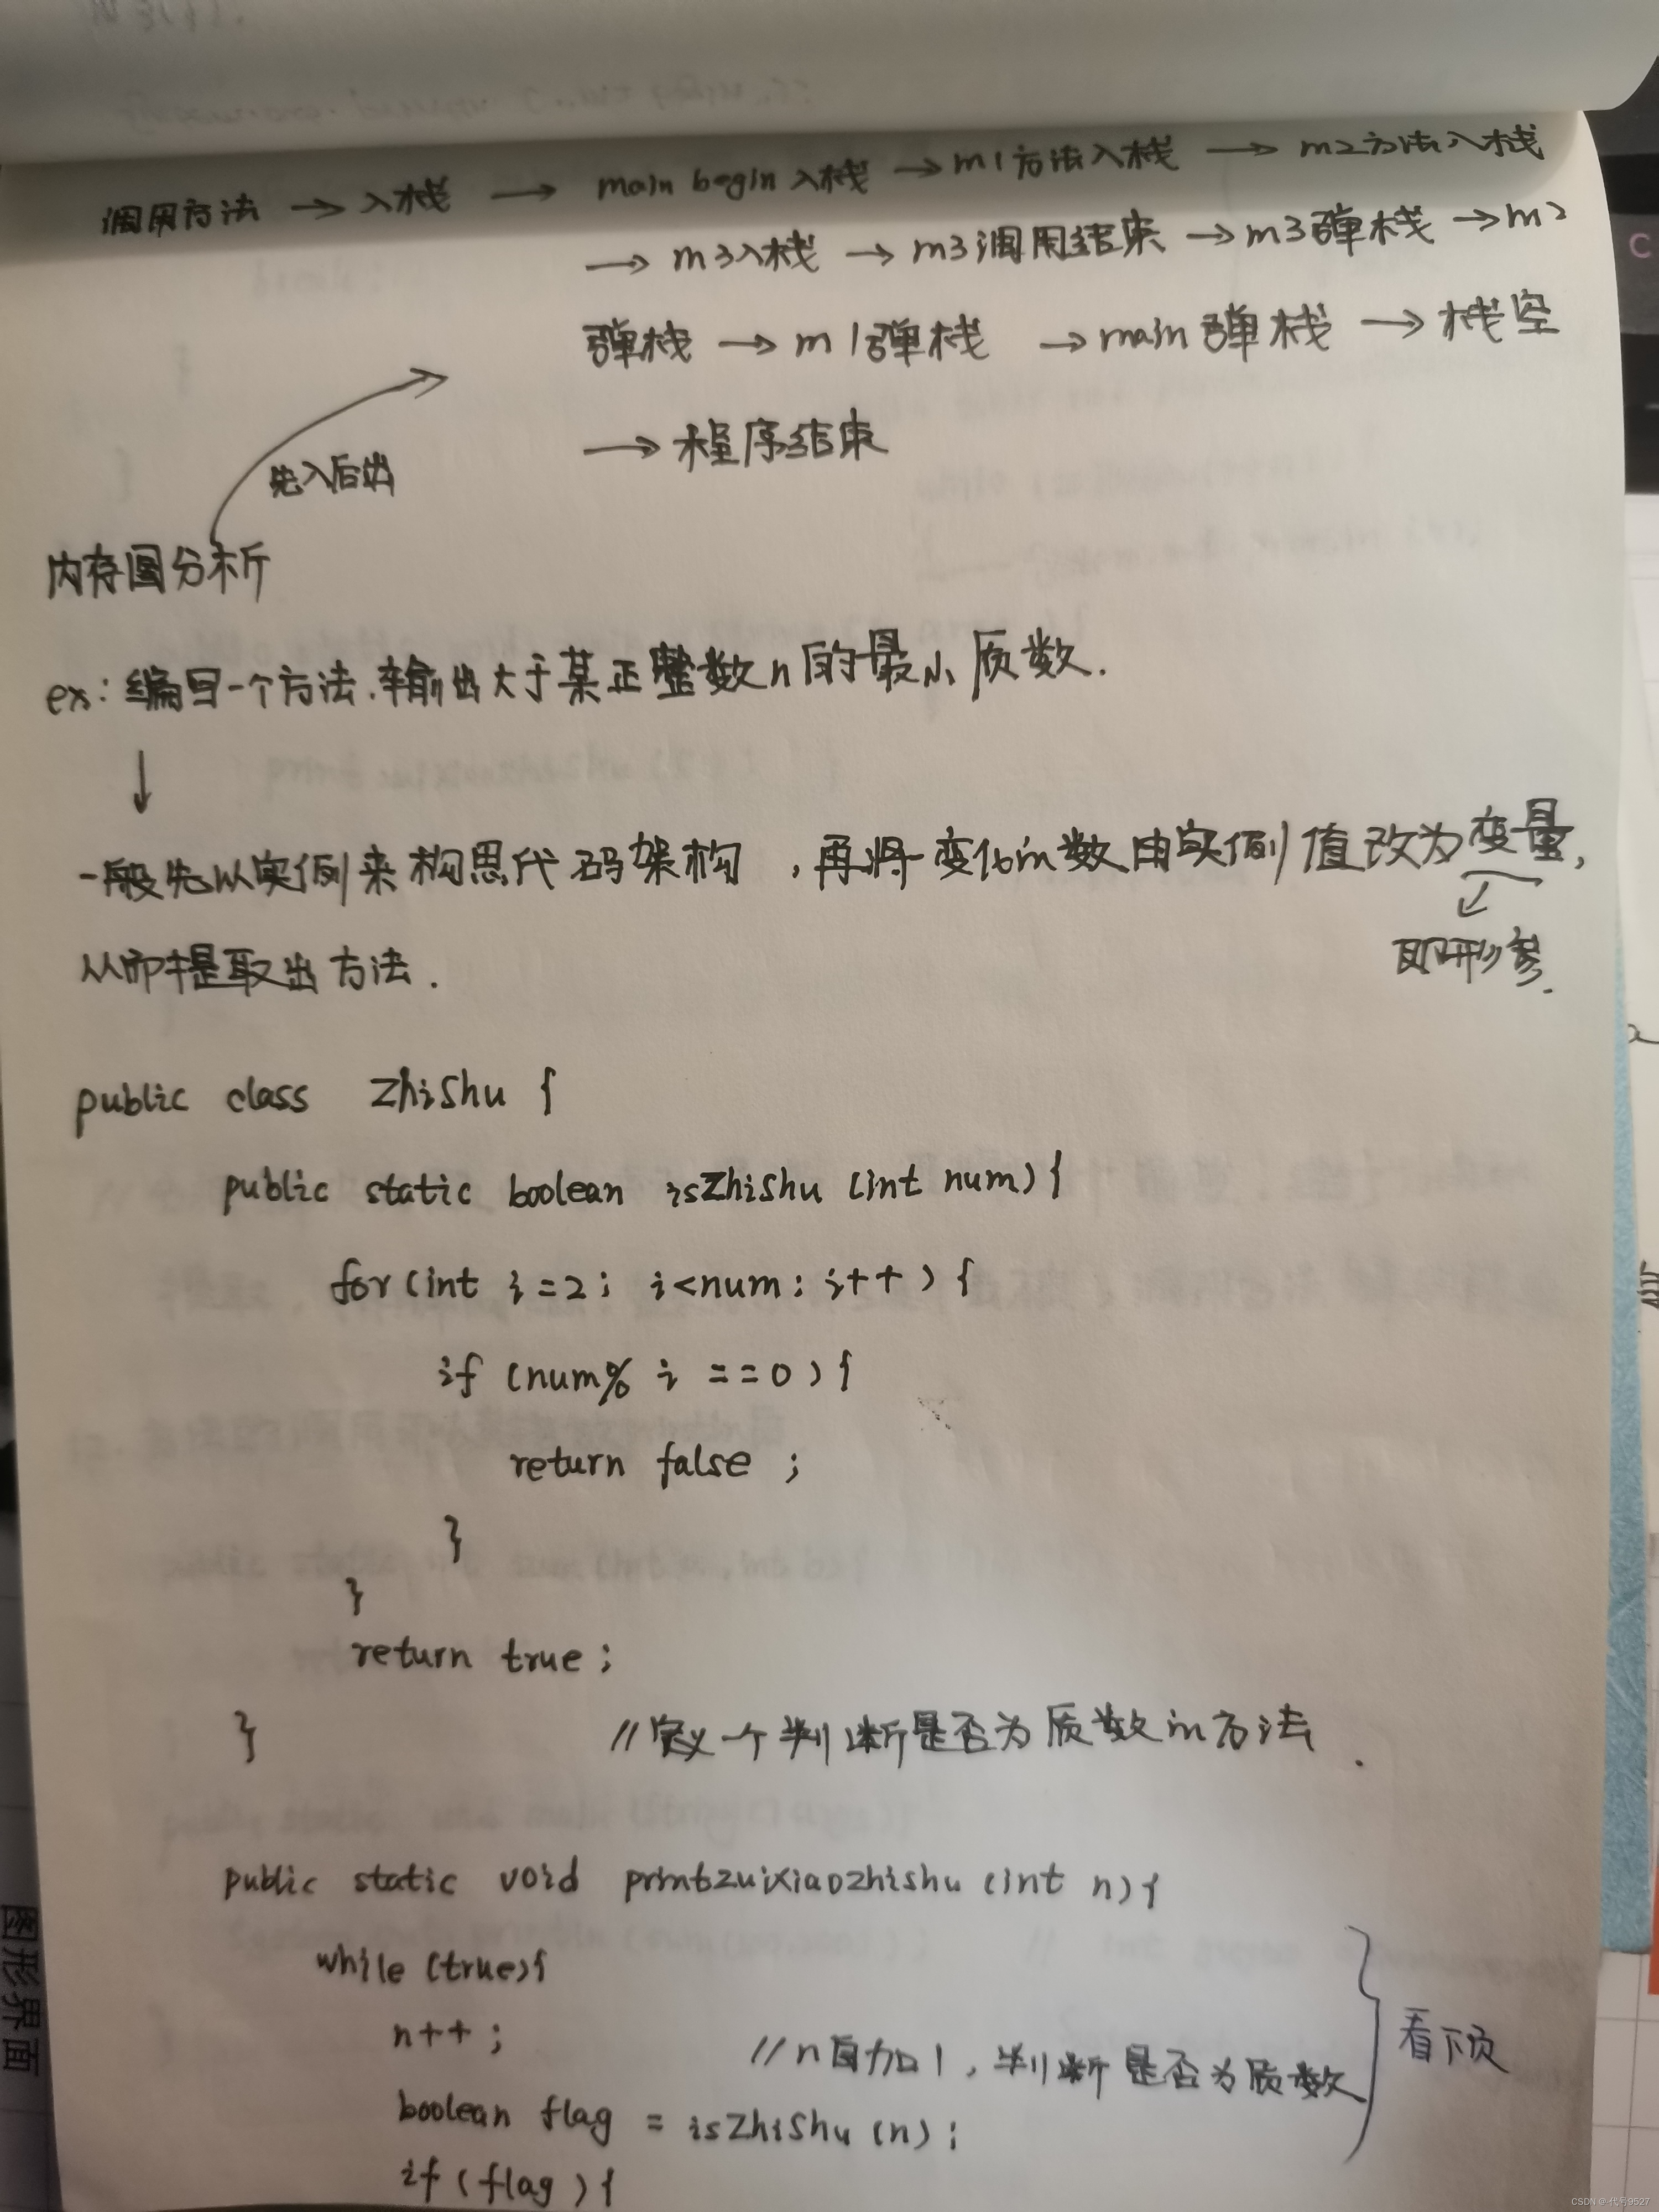 调用方法 → 入栈 → main begin 入栈 → m1方法入栈 → m2方法入栈
→ m3入栈 → m3调用结束 → m3弹栈 → m2
弹栈 → m1弹栈 → main弹栈 → 栈空
→ 程序结束
先入后出
内存图分析
ex: 编写一个方法.输出大于某正整数n的最小质数.
↓
一般先从实例来构思代码架构,再将变化的数由实例值改为变量,
即形参.
从而提取出方法.
public class ZhiShu {
public static boolean isZhiShu (int num) {
for (int i=2; i<num; i++) {
if (num% i ==0) {
return false ;
}
}
return true ;
}
//定义一个判断是否为质数的方法.
public static void printZuiXiaoZhishu (int n) {
while (true) {
n++ ;
//n自加1,判断是否为质数
看下页
boolean flag = isZhiShu (n) ;
if (flag) {
图形界面
C
CSDN @代号9527